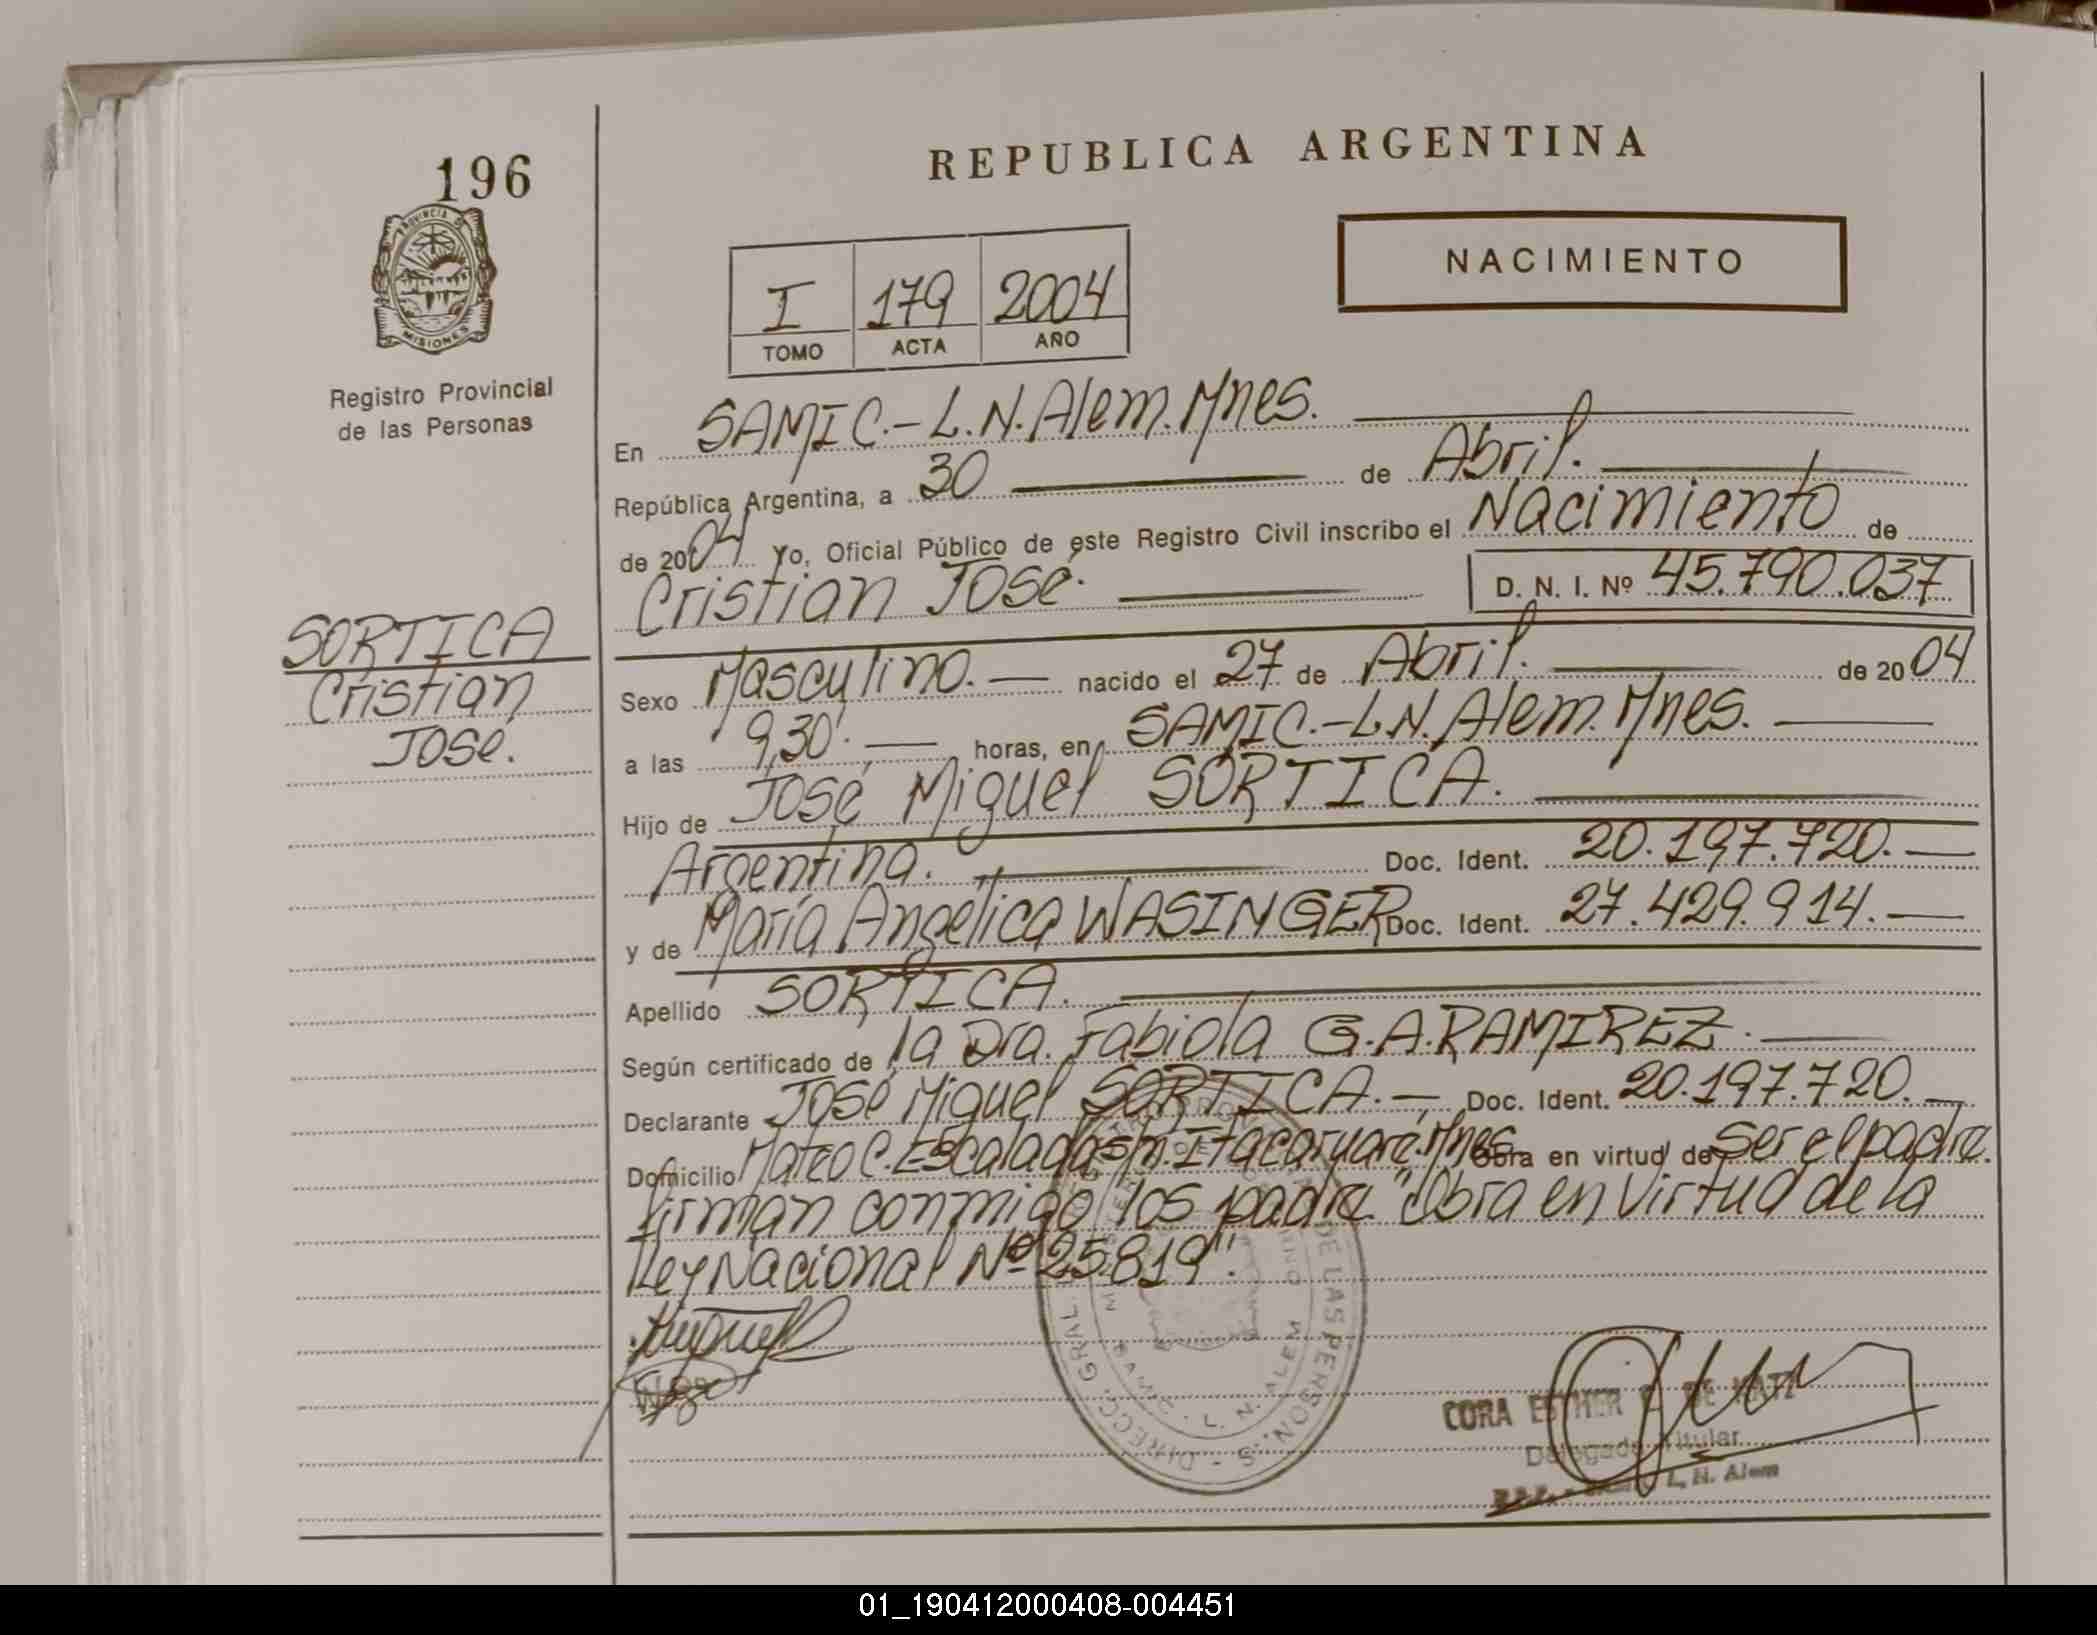 REPUBLICA ARGENTINA
196
NACIMIENTO
PROVINCIA DE
MISIONES
I 179 2004
TOMO ACTA AÑO
Registro Provincial
de las Personas
En SAMIC.-L.N.Alem.Mnes.
República Argentina, a 30 de Abril.
de 2004 Yo, Oficial Público de éste Registro Civil inscribo el Nacimiento de
Cristian José. D. N. I. Nº 45.790.037
SORTICA
Cristian
José.
Sexo Masculino. nacido el 27 de Abril. de 2004
a las 9,30'. horas, en SAMIC.-L.N.Alem.Mnes.
Hijo de José Miguel SORTICA.
Argentina. Doc. Ident. 20.197.720.
y de María Angélica WASINGER Doc. Ident. 27.429.914.
Apellido SORTICA.
Según certificado de la Dra. Fabiola G.A.RAMIREZ.
Declarante José Miguel SORTICA. Doc. Ident. 20.197.720.
Domicilio Mateo C. Escalada s/n. Itacaruaré.Mnes Obra en virtud de Ser el padre.
firman conmigo los padre. "Obra en virtud de la
Ley Nacional Nº 25.819".
DIRECC. GRAL. DE LAS PERSONAS
L. N. ALEM
CORA ESTHER DE KATZ
Delegada Titular
L. N. Alem
01_190412000408-004451